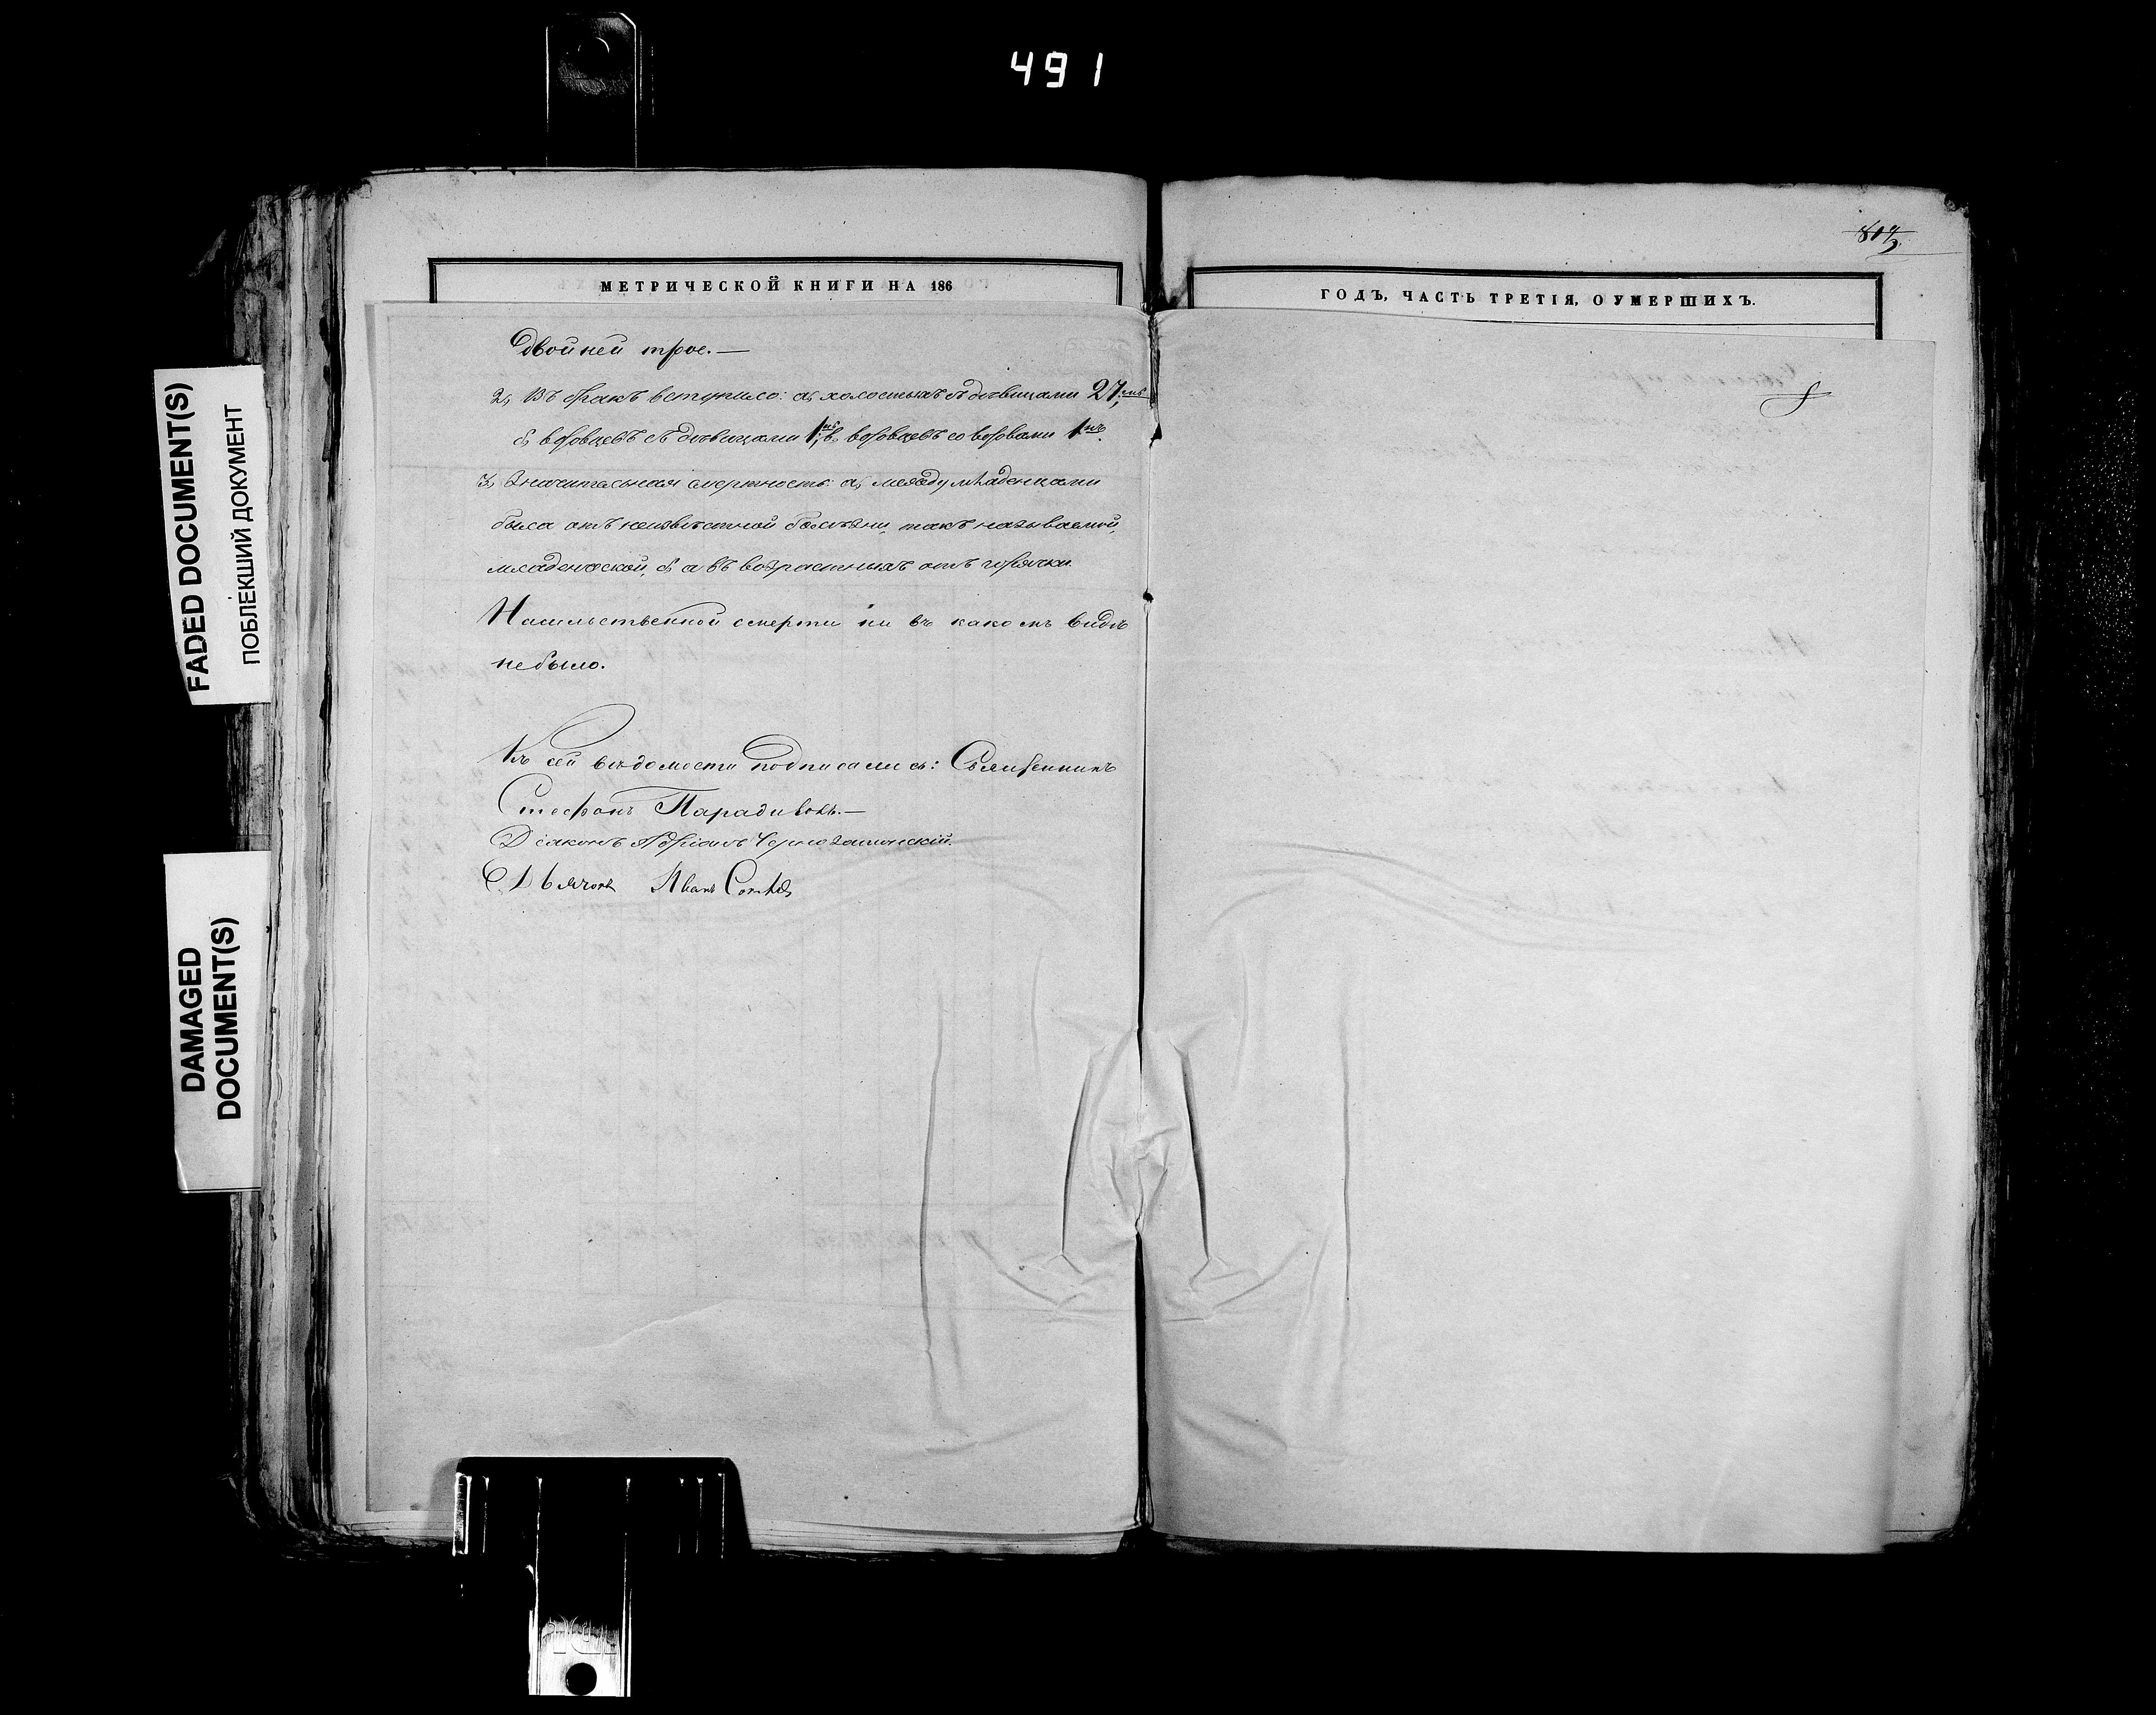 491
МЕТРИЧЕСКОЙ КНИГИ НА 186
ГОДЪ, ЧАСТЬ ТРЕТІЯ, О УМЕРШИХЪ.
двойней трое.—
2, Въ бракъ вступило: а, холостыхъ съ дѣвицами 27,
б, вдовцевъ съ дѣвицами 1, в, вдовцевъ со вдовами 1
3, Значительная смертность: а, между младенцами
была отъ неизвѣстной болѣзни, такъ называемой,
младенческой, б, а въ возрастныхъ отъ горячки.
Насильственной смерти ни въ какомъ видѣ
не было.
Къ сей вѣдомости подписались: Священникъ
Стефанъ
Діаконъ Адріанъ
Дьячокъ Иванъ
FADED DOCUMENT(S)
ПОБЛЕКШИЙ ДОКУМЕНТ
DAMAGED
DOCUMENT(S)